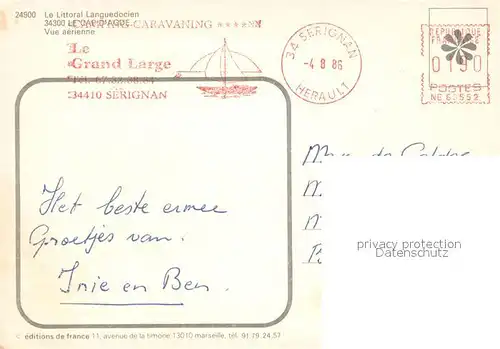 24900 Le Littoral Languedocien
34300 LE CAP D'AGDE
Vue aérienne
CAMPING-CARAVANING ****NN
Le
Grand Large
34410 SÉRIGNAN
34 SERIGNAN
-4 8 86
HERAULT
REPUBLIQUE
FRANÇAISE
0190
POSTES
Het beste ermee
Groetjes van.
Inie en Ben.
privacy protection
Datenschutz
© éditions de france 11, avenue de la timone, 13010 marseille, tél. 91.79.24.57